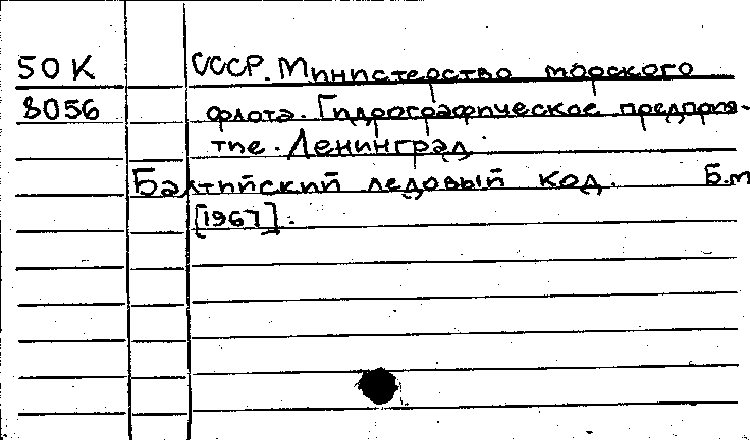 50К СССР. Министерство морского
8056 флота. Гидрографическое предприя-
тие. Ленинград.
Балтийский ледовый код. Б.м
[1967].